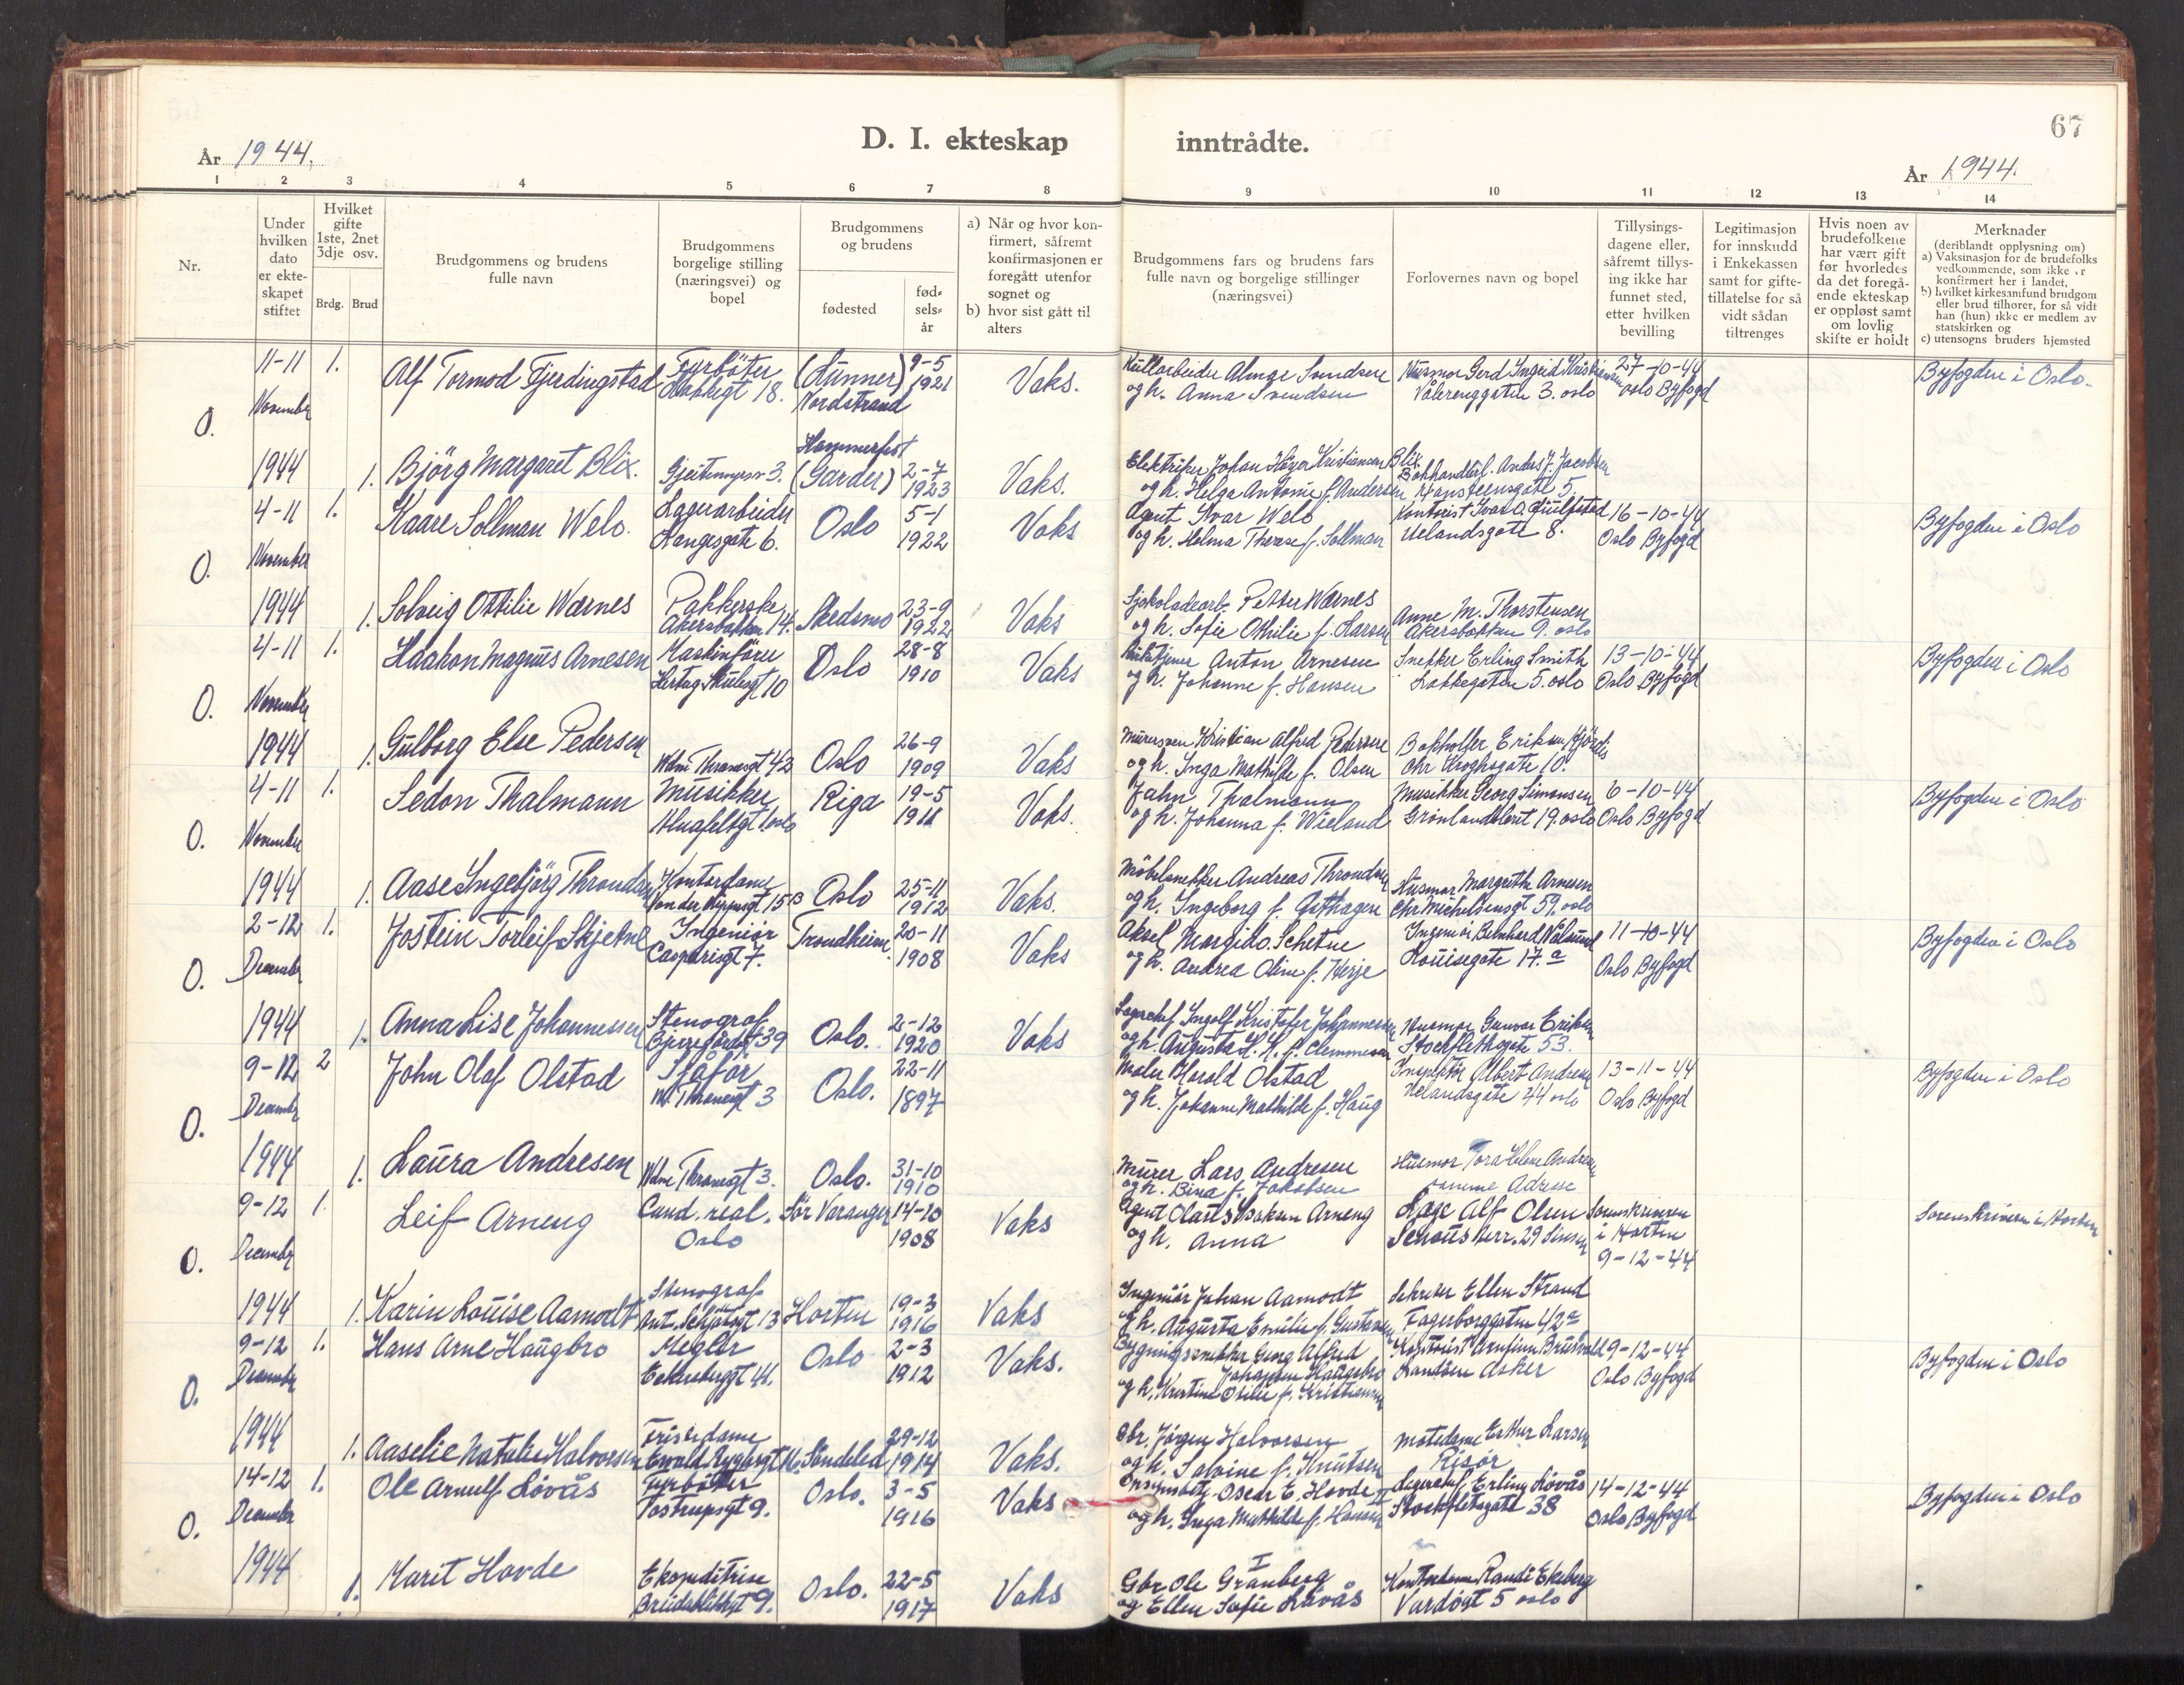 D. I. ekteskap inntrådte.
67
År 1944.
År 1944.
1 2 3 4 5 6 7 8 9 10 11 12 13 14
Nr.
Under hvilken dato er ekteskapet stiftet
Hvilket gifte 1ste, 2net 3dje osv.
Brdg. Brud
Brudgommens og brudens fulle navn
Brudgommens borgelige stilling (næringsvei) og bopel
Brudgommens og brudens
fødested
fødselsår
a) Når og hvor konfirmert, såfremt konfirmasjonen er foregått utenfor sognet og
b) hvor sist gått til alters
Brudgommens fars og brudens fars fulle navn og borgelige stillinger (næringsvei)
Forlovernes navn og bopel
Tillysingsdagene eller, såfremt tillysing ikke har funnet sted, etter hvilken bevilling
Legitimasjon for innskudd i Enkekassen samt for giftetillatelse for så vidt sådan tiltrenges
Hvis noen av brudefolkene har vært gift før hvorledes da det foregående ekteskap er oppløst samt om lovlig skifte er holdt
Merknader
(deriblandt opplysning om)
a) Vaksinasjon for de brudefolks vedkommende, som ikke er konfirmert her i landet,
b) hvilket kirkesamfund brudgom eller brud tilhører, for så vidt han (hun) ikke er medlem av statskirken og
c) utensogns bruders hjemsted
O. 11-11 November 1944 1. Alf Tormod Fjerdingstad Fyrbøter 18. (Lunner) Nordstrand 9-5 1921 Vaks. Anna Svendsen Husmor Gerd Ingrid Vålerenggaten 3. oslo 27-10-44 oslo Byfogd Byfogden i Oslo.
1. Bjørg Margaret Blix. 3. Hammerfest (Garder) 2-7 1923 Vaks. Elektriker Johan Kristiansen Blix og h. Helga Antonie f. Andersen 5
O. 4-11 November 1944 1. Kaare Sollman Welo. Lagerarbeider Kongesgate 6. Oslo 5-1 1922 Vaks Agent Ivar Welo og h. Helma Therese f. Sollman Kontorist Uelandsgate 8. 16-10-44 Oslo Byfogd Byfogden i Oslo
1. Solveig Ottilie Wærnes Pakkerske Akersbakken 14. Skedsmo 23-9 1922 Vaks Sjokoladearb. Petter Wærnes og h. Sofie Othilie f. Larsen Anne M. Thorstensen Akersbakken 9. oslo
O. 4-11 November 1944 1. Haakon Magnus Arnesen Maskinfører Hertug Skulesgt 10 Oslo 28-8 1910 Vaks Anton Arnesen og h. Johanne f. Hansen Snekker Erling Smith Lakkegaten 5. oslo 13-10-44 Oslo Byfogd Byfogden i Oslo
1. Gulborg Else Pedersen Wdm Thranesgt 42 Oslo 26-9 1909 Vaks Murersven Kristian Alfred Pedersen og h. Inga Mathilde f. Olsen Bokholder Eriksen Hjørdis Chr Kroghsgate 10.
O. 4-11 November 1944 1. Sedon Thalmann Musikker oslo Riga 19-5 1911 Vaks. Jahn Thalmann og h. Johanna f. Wieland Musikker Georg Simonsen Grønlandsleret 19. oslo 6-10-44 Oslo Byfogd Byfogden i Oslo
1. Aase Ingebjørg Throndsen Kontordame 15 B Oslo 25-11 1912 Vaks. Møbelsnekker Andreas Throndsen og h. Ingeborg f. Husmor Margrethe Arnesen Chr Michelsensgt 59. oslo
O. 2-12 December 1944 1. Jostein Torleif Skjetne Ingeniør Casparisgt 7. Trondheim. 20-11 1908 Vaks Aksel Schetne og h. Andrea Oline f. Herje Ingeniør Bernhard Louisegate 17. a 11-10-44 Oslo Byfogd Byfogden i Oslo
1. Anna Lise Johannessen Stenograf Bjerregårdsgt 39 Oslo. 2-12 1920 Vaks Lagerchef Ingolf Kristofer Johannessen og h. Augusta H. H. f. Clemmesen Husmor Gunvor Eriksen Stockflethsgate 53.
O. 9-12 December 1944 2 John Olaf Olstad Sjåfør W. Thranesgt 3 Oslo. 22-11 1897 Maler Harald Olstad og h. Johanne Mathilde f. Haug Inspektør Albert Andresen Uelandsgate 44 oslo 13-11-44 Oslo Byfogd Byfogden i Oslo
1. Laura Andresen Wdm Thranesgt 3. Oslo. 31-10 1910 Murer Lars Andresen og h. Bina f. Jakobsen Husmor Tora Helene Andresen samme Adresse
O. 9-12 December 1944 1. Leif Arneng Cand. real. Oslo Sør Varanger 14-10 1908 Vaks Agent Isaksen Arneng og h. Anna Alf Olsen 29 Sinsen Sorenskriveren i Horten 9-12-44 Sorenskriveren i Horten
1. Karin Louise Aamodt Stenograf Ant. Schjøtsgt 13 Horten 19-3 1916 Vaks Ingeniør Johan Aamodt og h. Augusta Emilie f. Gustavsen Sekretær Ellen Strand Fagerborggaten 42 a
O. 9-12 December 1944 1. Hans Arne Haugbro Megler 41. Oslo 2-3 1912 Vaks. Bygningssnekker Georg Alfred Johansen Haugbro og h. Kristine f. Kristiansen Asker 9-12-44 Oslo Byfogd Byfogden i Oslo
1. Aaselie Natalie Halvorsen Friserdame Søndeled 29-12 1914 Vaks. Gbr. Jørgen Halvorsen og h. Salvine f. Knutsen Motedame Esther Larsen Risør
O. 14-12 December 1944 1. Ole Arnulf Løvås Fyrbøter Tostrupsgt 9. Oslo. 3-5 1916 Vaks Oscar E. Hovde II og h. Inga Mathilde f. Hansen Lagerchef Erling Løvås Stockfletsgate 38 14-12-44 Oslo Byfogd Byfogden i Oslo
1. Marit Hovde Ekspeditrise 9. Oslo. 22-5 1917 Vaks I Gbr Ole Granberg og Ellen Sofie Løvås Kontordame Randi Ekeberg Vardøgt 5 oslo